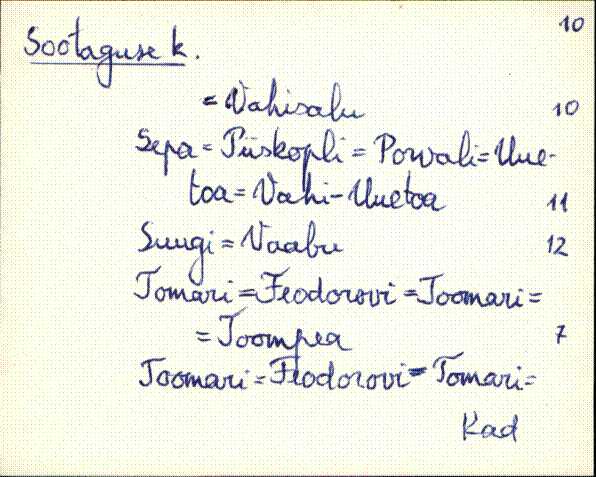 10
Sootaguse k.
= Vahisalu 10
Sepa = Piiskopli = Porvali = Uue-
toa = Vahi-Uuetoa 11
Suugi = Vaabu 12
Tomari = Feodorovi = Toomari =
= Toompea 7
Toomari = Feodorovi = Tomari =
Kad